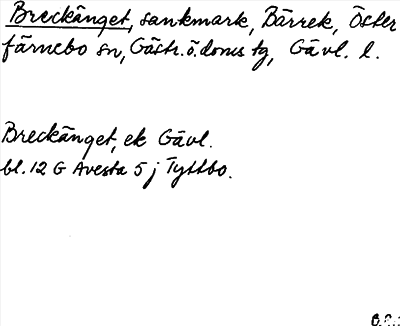 Breckänget, sankmark, Bärrek, Öster
färnebo sn, Gästr.ö.doms tg, Gävl. l.
Breckänget, ek Gävl.
bl. 12 G Avesta 5 j Tyttbo.